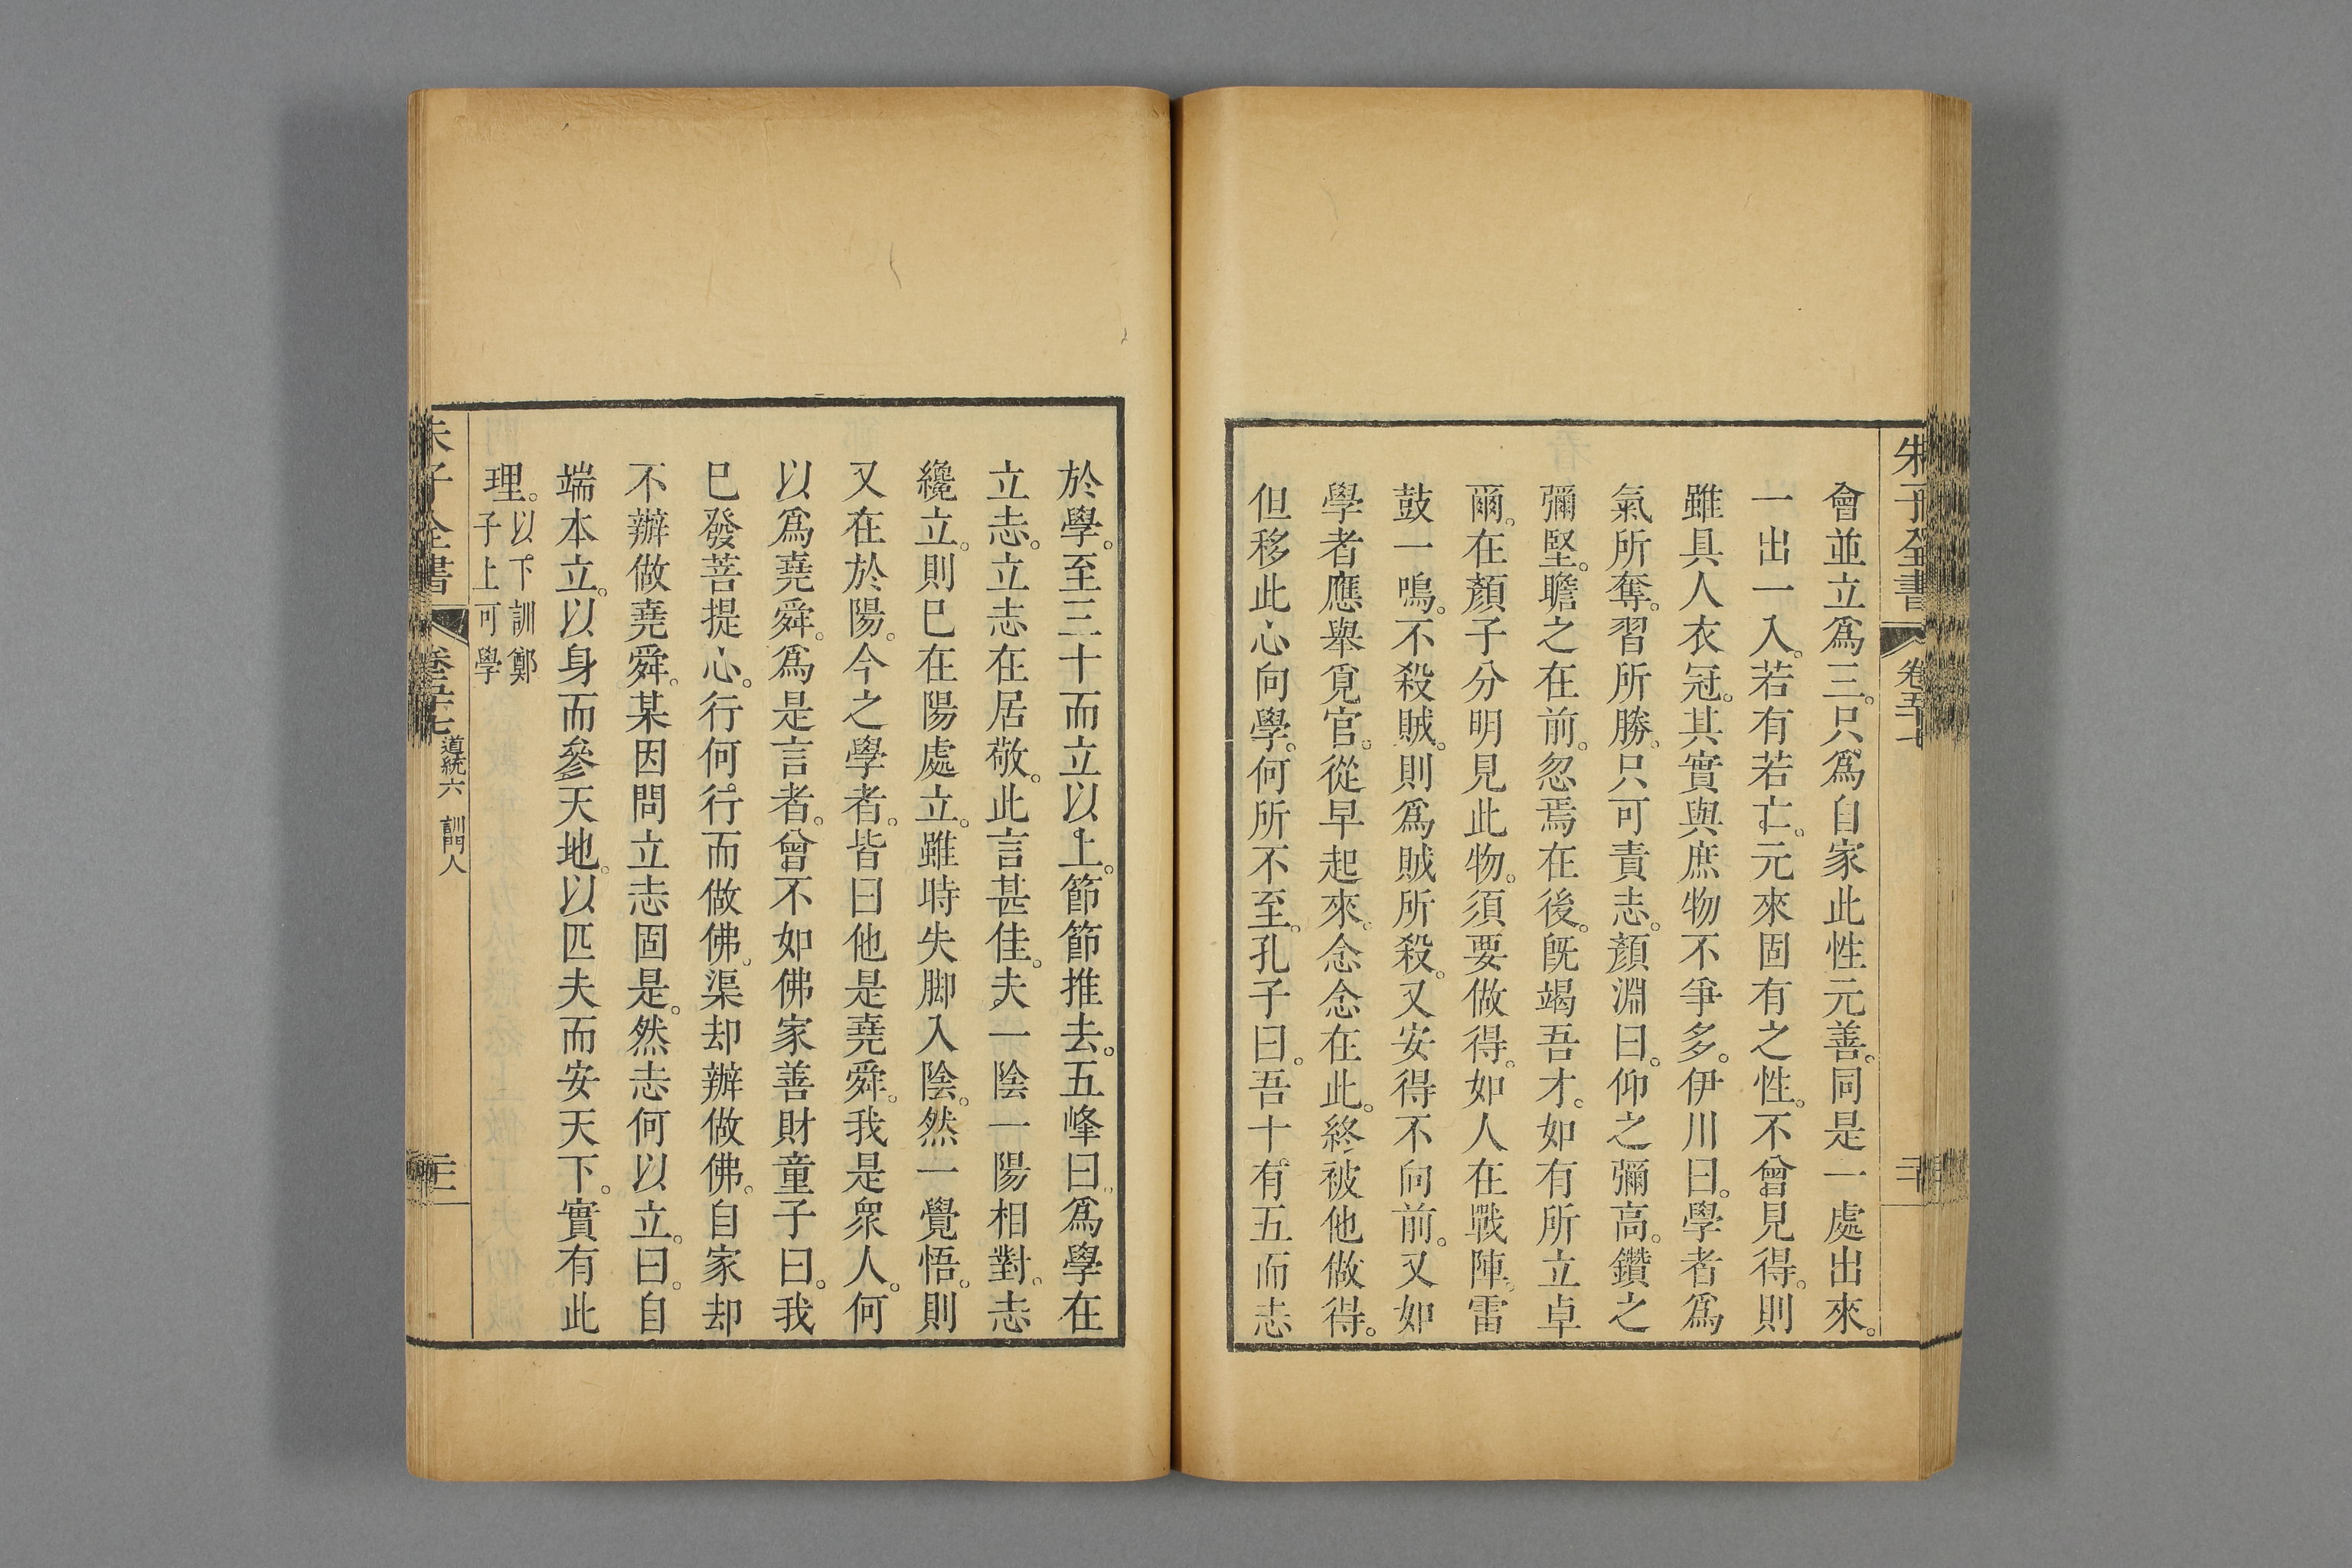 朱子全書
會並立爲三。只爲自家此性元善。同是一處出來。
一出一入。若有若亡。元來固有之性。不曾見得。則
雖具人衣冠。其實與庶物不爭多。伊川曰。學者爲
氣所奪。習所勝。只可責志。顏淵曰。仰之彌高。鑽之
彌堅。瞻之在前。忽焉在後。旣竭吾才。如有所立卓
爾。在顏子分明見此物。須要做得。如人在戰陣。雷
鼓一鳴。不殺賊。則爲賊所殺。又安得不向前。又如
學者應舉覓官。從早起來。念念在此。終被他做得。
但移此心向學。何所不至。孔子曰。吾十有五而志
於學。至三十而立以上。節節推去。五峰曰。爲學在
立志。立志在居敬。此言甚佳。夫一陰一陽相對。志
纔立。則已在陽處立。雖時失脚入陰。然一覺悟。則
又在於陽。今之學者。皆曰他是堯舜。我是衆人。何
以爲堯舜。爲是言者。曾不如佛家善財童子曰。我
已發菩提心。行何行而做佛。渠却辦做佛。自家却
不辦做堯舜。某因問立志固是。然志何以立。曰。自
端本立。以身而參天地。以匹夫而安天下。實有此
理。以下訓鄭
子上可學
子全書
道統六 訓門人